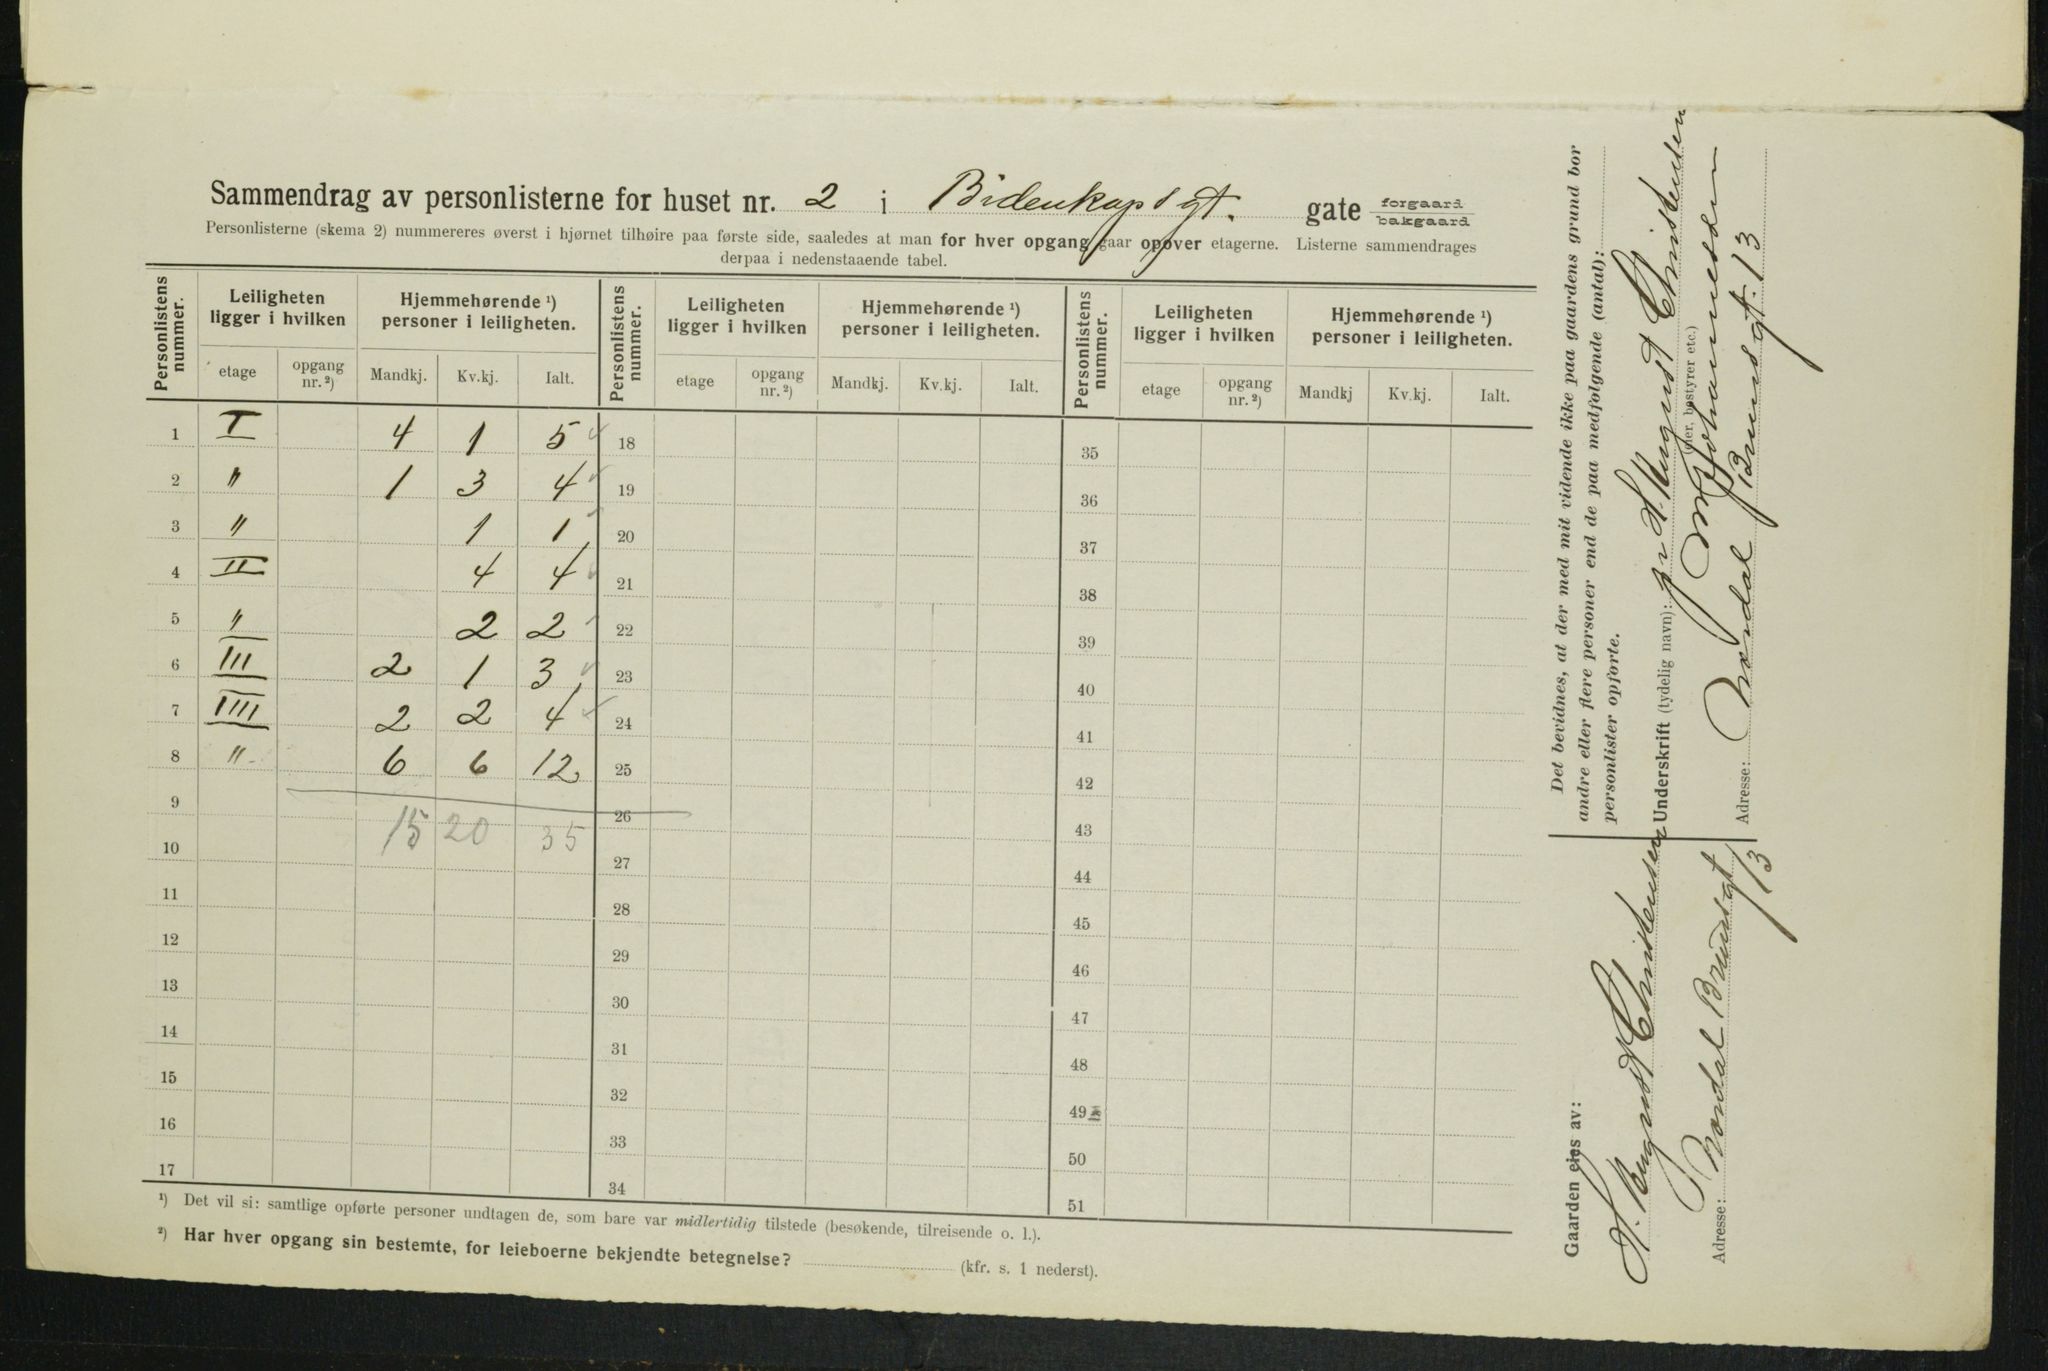 Sammendrag av personlisterne for huset nr. 2 i Bidenkapsgt. gate forgaard bakgaard
Personlisterne (skema 2) nummereres øverst i hjørnet tilhøire paa første side, saaledes at man for hver opgang gaar opover etagerne. Listerne sammendrages
derpaa i nedenstaaende tabel.
Personlistens nummer. Leiligheten ligger i hvilken Hjemmehørende ¹) personer i leiligheten. Personlistens nummer. Leiligheten ligger i hvilken Hjemmehørende ¹) personer i leiligheten. Personlistens nummer. Leiligheten ligger i hvilken Hjemmehørende ¹) personer i leiligheten.
etage opgang nr. ²) Mandkj. Kv.kj. Ialt. etage opgang nr. ²) Mandkj. Kv.kj. Ialt. etage opgang nr. ²) Mandkj Kv.kj. Ialt.
1 I 4 1 5 18 35
2 " 1 3 4 19 36
3 " 1 1 20 37
4 II 4 4 21 38
5 " 2 2 22 39
6 III 2 1 3 23 40
7 IIII 2 2 4 24 41
8 " 6 6 12 25 42
9 26 43
15 20 35
10 27 44
11 28 45
12 29 46
13 30 47
14 31 48
15 32 49
16 33 50
17 34 51
¹) Det vil si: samtlige opførte personer undtagen de, som bare var midlertidig tilstede (besøkende, tilreisende o. l.).
²) Har hver opgang sin bestemte, for leieboerne bekjendte betegnelse? (kfr. s. 1 nederst).
Det bevidnes, at der med mit vidende ikke paa gaardens grund bor
andre eller flere personer end de paa medfølgende (antal):
personlister opførte.
Underskrift (tydelig navn): pr H. August Christensen
(eier, bestyrer etc.)
Johannessen
Adresse: Nordal Brunsgt. 13
Gaarden eies av:
H. August Christensen
Adresse: Nordal Brunsgt
13